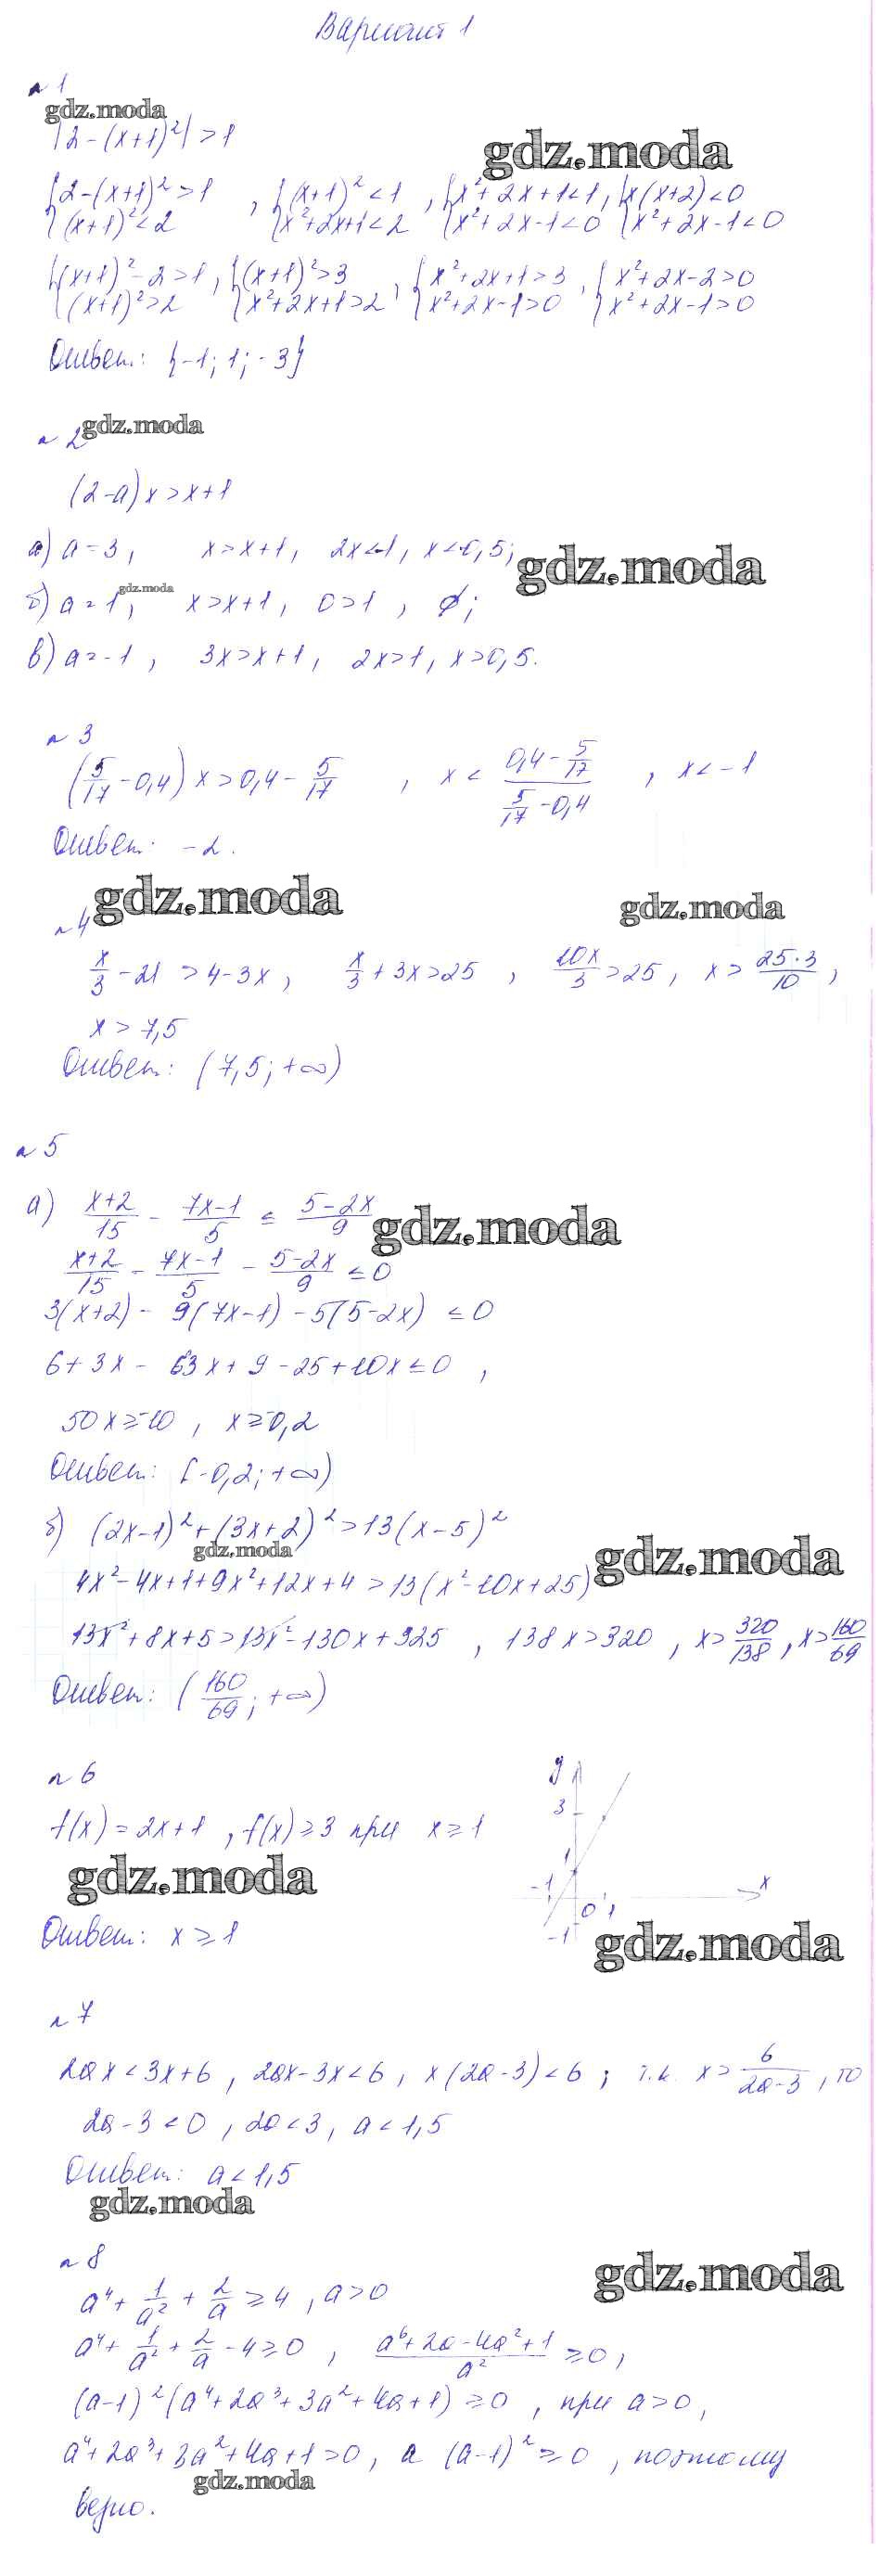 Вариант 1
№ 1
gdz.moda
|2-(x+1)²|>1
gdz.moda
{2-(x+1)²>1 , {(x+1)²<1 , {x²+2x+1<1 , {x(x+2)<0
{(x+1)²<2 {x²+2x+1<2 {x²+2x-1<0 {x²+2x-1<0
{(x+1)²-2>1 , {(x+1)²>3 , {x²+2x+1>3 , {x²+2x-2>0
{(x+1)²>2 {x²+2x+1>2 {x²+2x-1>0 {x²+2x-1>0
Ответ: {-1; 1; -3}
№ 2
gdz.moda
(2-a)x>x+1
а) a=3, x>x+1, 2x<-1, x<-0,5;
gdz.moda
б) a=1, x>x+1, 0>1, ∅;
gdz.moda
в) a=-1, 3x>x+1, 2x>1, x>0,5.
№ 3
(5/17 - 0,4)x>0,4 - 5/17 , x< (0,4 - 5/17)/(5/17 - 0,4) , x<-1
Ответ: -2.
gdz.moda
gdz.moda
№ 4
x/3 - 21 > 4-3x, x/3 + 3x>25 , 10x/3 >25, x> 25·3/10 ,
x > 7,5
Ответ: (7,5; +∞)
№ 5
а) (x+2)/15 - (7x-1)/5 ≤ (5-2x)/9
gdz.moda
(x+2)/15 - (7x-1)/5 - (5-2x)/9 ≤0
3(x+2) - 9(7x-1) - 5(5-2x) ≤0
6+3x - 63x+9-25+10x≤0 ,
50x≥-10 , x≥-0,2
Ответ: [-0,2; +∞)
б) (2x-1)²+(3x+2)²>13(x-5)²
gdz.moda
gdz.moda
4x²-4x+1+9x²+12x+4 >13(x²-10x+25)
13x²+8x+5>13x²-130x+325 , 138x>320 , x> 320/138 , x> 160/69
Ответ: (160/69; +∞)
№ 6
f(x)=2x+1 , f(x)≥3 при x≥1
y
3
1
-1
0 1
x
-1
gdz.moda
Ответ: x≥1
gdz.moda
№ 7
2ax<3x+6 , 2ax-3x<6 , x(2a-3)<6 ; т.к. x> 6/(2a-3) , то
2a-3<0 , 2a<3 , a<1,5
Ответ: a<1,5
gdz.moda
№ 8
gdz.moda
a⁴+ 1/a² + 2/a ≥4 , a>0
a⁴+ 1/a² + 2/a -4≥0 , (a⁶+2a-4a²+1)/a² ≥0,
(a-1)²(a⁴+2a³+3a²+4a+1)≥0 , при a>0,
a⁴+2a³+3a²+4a+1>0, а (a-1)²≥0 , поэтому
gdz.moda
верно.